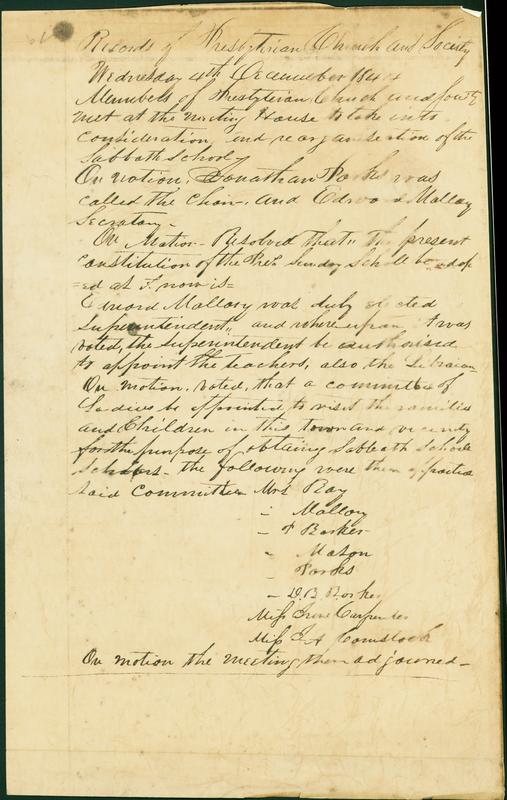 Records of Presbyterian Church and Society
Wednesday 4th December 1844
Members of Presbyterian Church and Socity
met at the meeting House to take into
consideration and reorganisation of the
Sabbath School
On Motion, Jonathan Parks was
called the Chair, and Edward Mallory
Secratary -
On Motion - Resolved that" the present
Constitution of the Pres. Sunday School be adop
=ed as it now is =
Edward Mallory was duly elected
Superintendent" and whereupon it was
voted, the superintendent be authorised
to appoint the teachers, also the Librarian
On motion, voted, that a committee of
Ladies be appointed to visit the families
and Children in this town and vicinity
for the purpose of obtaing Sabbath School
Scholars - the following were then appointed
said Committee Mrs Ray
" Mallory
- Barker
" Mason
- Parks
- D. B. Borker
Miss Carpenter
Miss Comstock
On motion the meeting then adjourned -